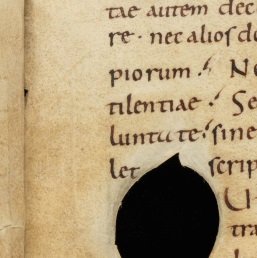 tae autem dec
re · nec alios do
piorum · N
tilentiae · Se
luntate · sine
let scrip
tra